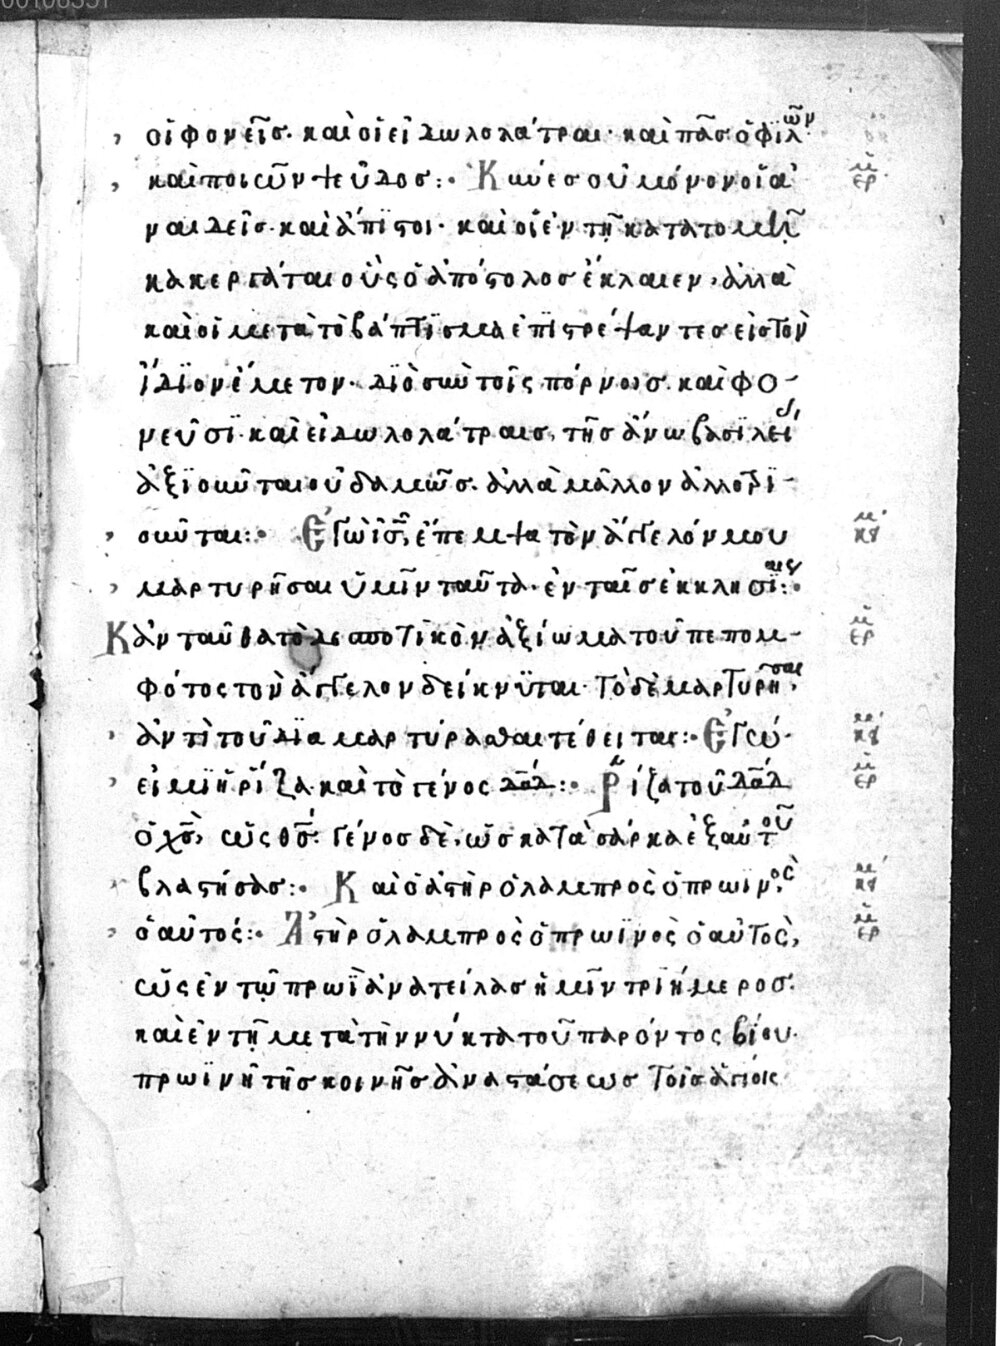 οἱ φονεῖς· καὶ οἱ εἰδωλολάτραι· καὶ πᾶς ὁ φιλῶν
καὶ ποιῶν ψεῦδος:· Κύνες οὐ μόνον οἱ ἀ
ναιδεῖς· καὶ ἄπιστοι· καὶ οἱ ἐν τῇ κατατομῇ
κακεργάται οὓς ὁ ἀπόστολος ἔκλαιεν, ἀλλὰ
καὶ οἱ μετὰ τὸ βάπτϊσμα ἐπϊστρέψαντες εἰς τὸν
ἴδϊον ἔμετον· δϊὸ σὺν τοῖς πόρνοις· καὶ φο-
νεῦσϊ· καὶ εἰδωλολάτραις, τῆς ἄνω βασϊλεί
ἀξϊοῦνται οὐδαμῶς· ἀλλὰ μᾶλλον ἀλλοτρϊ-
οῦνται:· Ἐγὼ ἰς̅, ἔπεμψα τὸν ἄγγελόν μου
μαρτυρῆσαι ὑμῖν ταῦτα· ἐν ταῖς ἐκκλησΐαις:·
Κἀνταῦθα τὸ δεσποτικὸν ἀξίωμα τοῦ πεπομ-
φότος τὸν ἄγγελον δείκνϋται· τὸ δὲ μαρτυρῆσαι,
ἀντὶ τοῦ δϊαμαρτύρασθαι τέθειται:· Ἐγώ
εἰμϊ ἡ ῥίζα καὶ τὸ γένος δα̅δ̅:· Ῥίζα τοῦ δα̅δ̅
ὁ χ̅ς̅, ὡς θ̅ς̅· γένος δὲ, ὡς κατὰ σάρκα ἐξ αὐτοῦ
βλαστήσας:· Καὶ ὁ ἀστὴρ ὁ λαμπρὸς ὁ πρωϊνὸς
ὁ αὐτός:· Ἀστὴρ ὁ λαμπρὸς ὁ πρωϊνὸς ὁ αὐτὸς,
ὡς ἐν τῷ πρωῒ ἀνατείλας ἡμῖν τρϊήμερος·
καὶ ἐν τῇ μετὰ τὴν νύκτα τοῦ παρόντος βίου·
πρωϊνῇ τῆς κοινῆς ἀναστάσεως τοῖς ἁγίοις